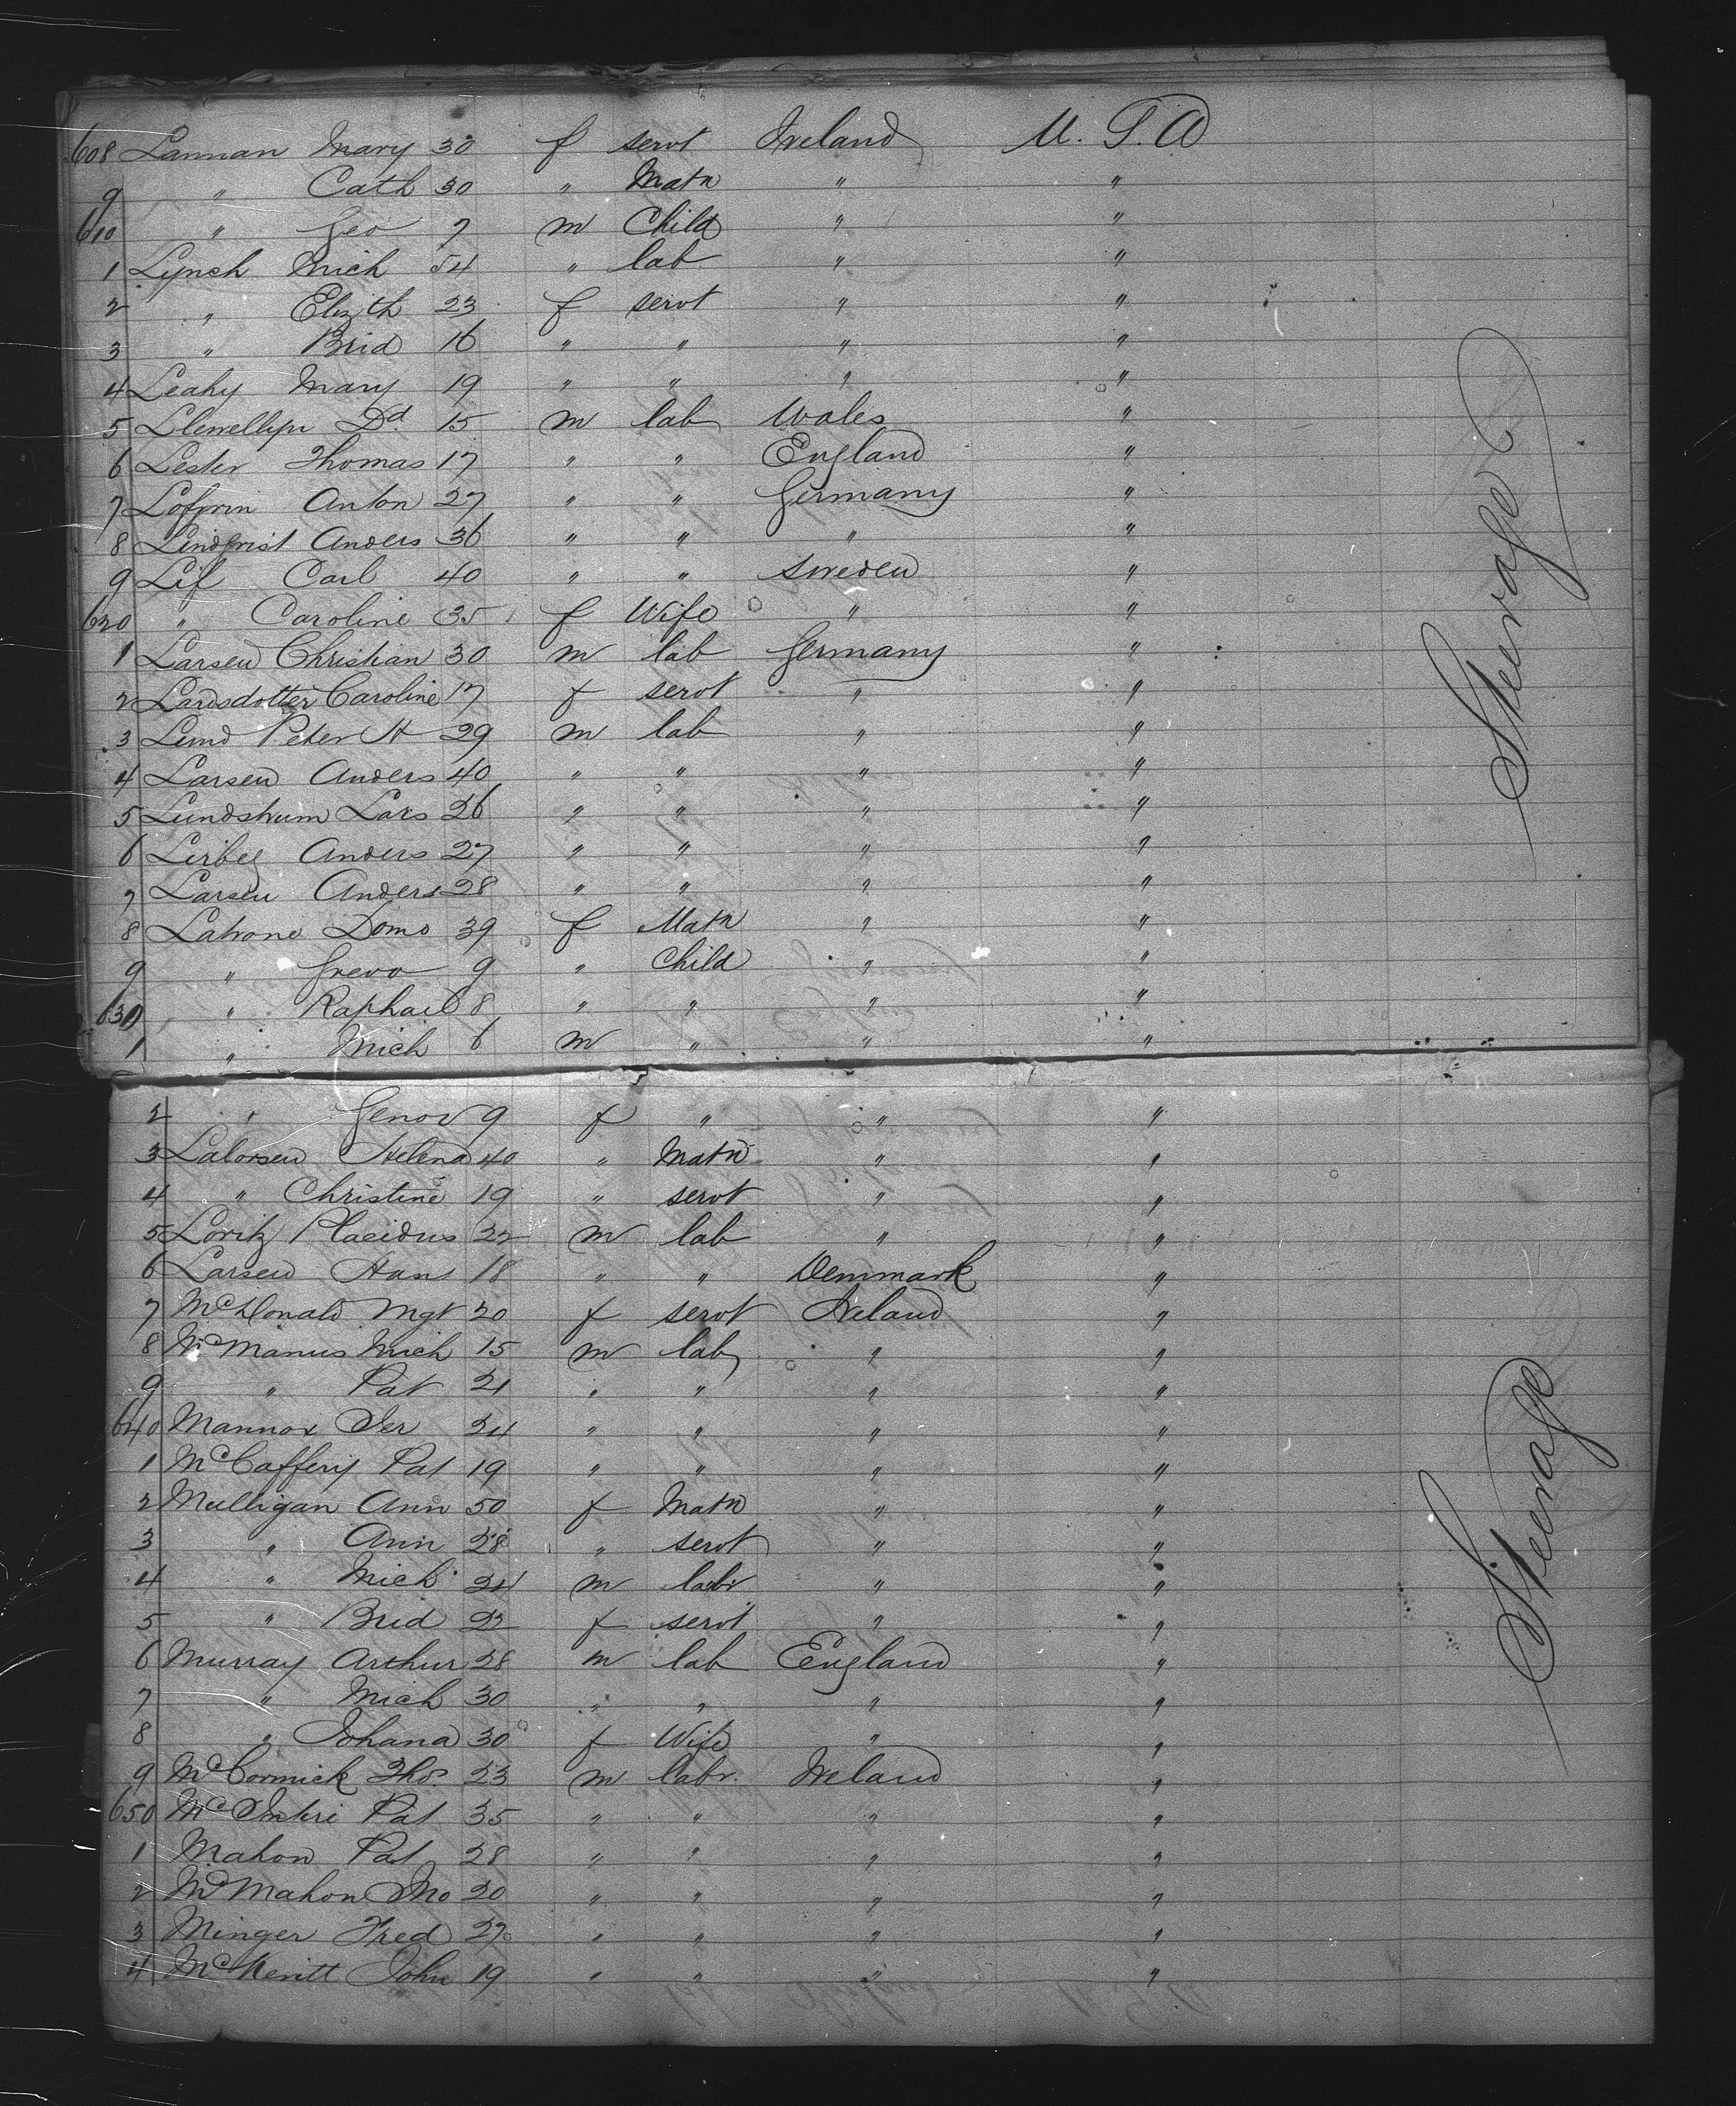 608 Lannan Mary 30 f servt Ireland U. S. A
9 " Cath 30 " Matn " "
610 " Geo 7 m Child " "
1 Lynch Mich 54 " lab " "
2 " Elizth 23 f servt " "
3 " Brid 16 " " " "
4 Leahy Mary 19 " " " "
5 Llewellyn Dd 15 m lab Wales "
6 Lester Thomas 17 " " England "
7 Anton 27 " " Germany "
8 Lindqrist Anders 36 " " " "
9 Lif Carl 40 " " Sweden "
620 " Caroline 35 f Wife " "
1 Larsen Christian 30 m lab Germany "
2 Larsdotter Caroline 17 f servt " "
3 Lund Peter H 29 m lab " "
4 Larsen Anders 40 " " " "
5 Lundstrum Lars 26 " " " "
6 Anders 27 " " " "
7 Larsen Anders 28 " " " "
8 Latrone Domo 39 f Matn " "
9 " Grevo 9 " Child " "
630 " Raphail 8 " " " "
1 " Mich 6 m " " "
Steerage
2 " Genov 9 f " " "
3 Lalorsen Helena 40 " Matn " "
4 " Christine 19 " servt " "
5 Loritz Placidus 22 m lab " "
6 Larsen Hans 18 " " Denmark "
7 McDonald Mgt 20 f servt Ireland "
8 McManus Mich 15 m lab " "
9 " Pat 21 " " " "
640 Mannox Jer 24 " " " "
1 McCaffery Pat 19 " " " "
2 Mulligan Ann 50 f Matn " "
3 " Ann 28 " servt " "
4 " Mich 24 m labr " "
5 " Brid 22 f servt " "
6 Murray Arthur 28 m lab England "
7 " Mich 30 " " " "
8 " Johana 30 f Wife " "
9 McCormick Thos. 23 m labr. Ireland "
650 McIntiri Pat 35 " " " "
1 Mahon Pat 28 " " " "
2 McMahon Jno 20 " " " "
3 Minger Fred 27 " " " "
4 McKevitt John 19 " " " "
Steerage